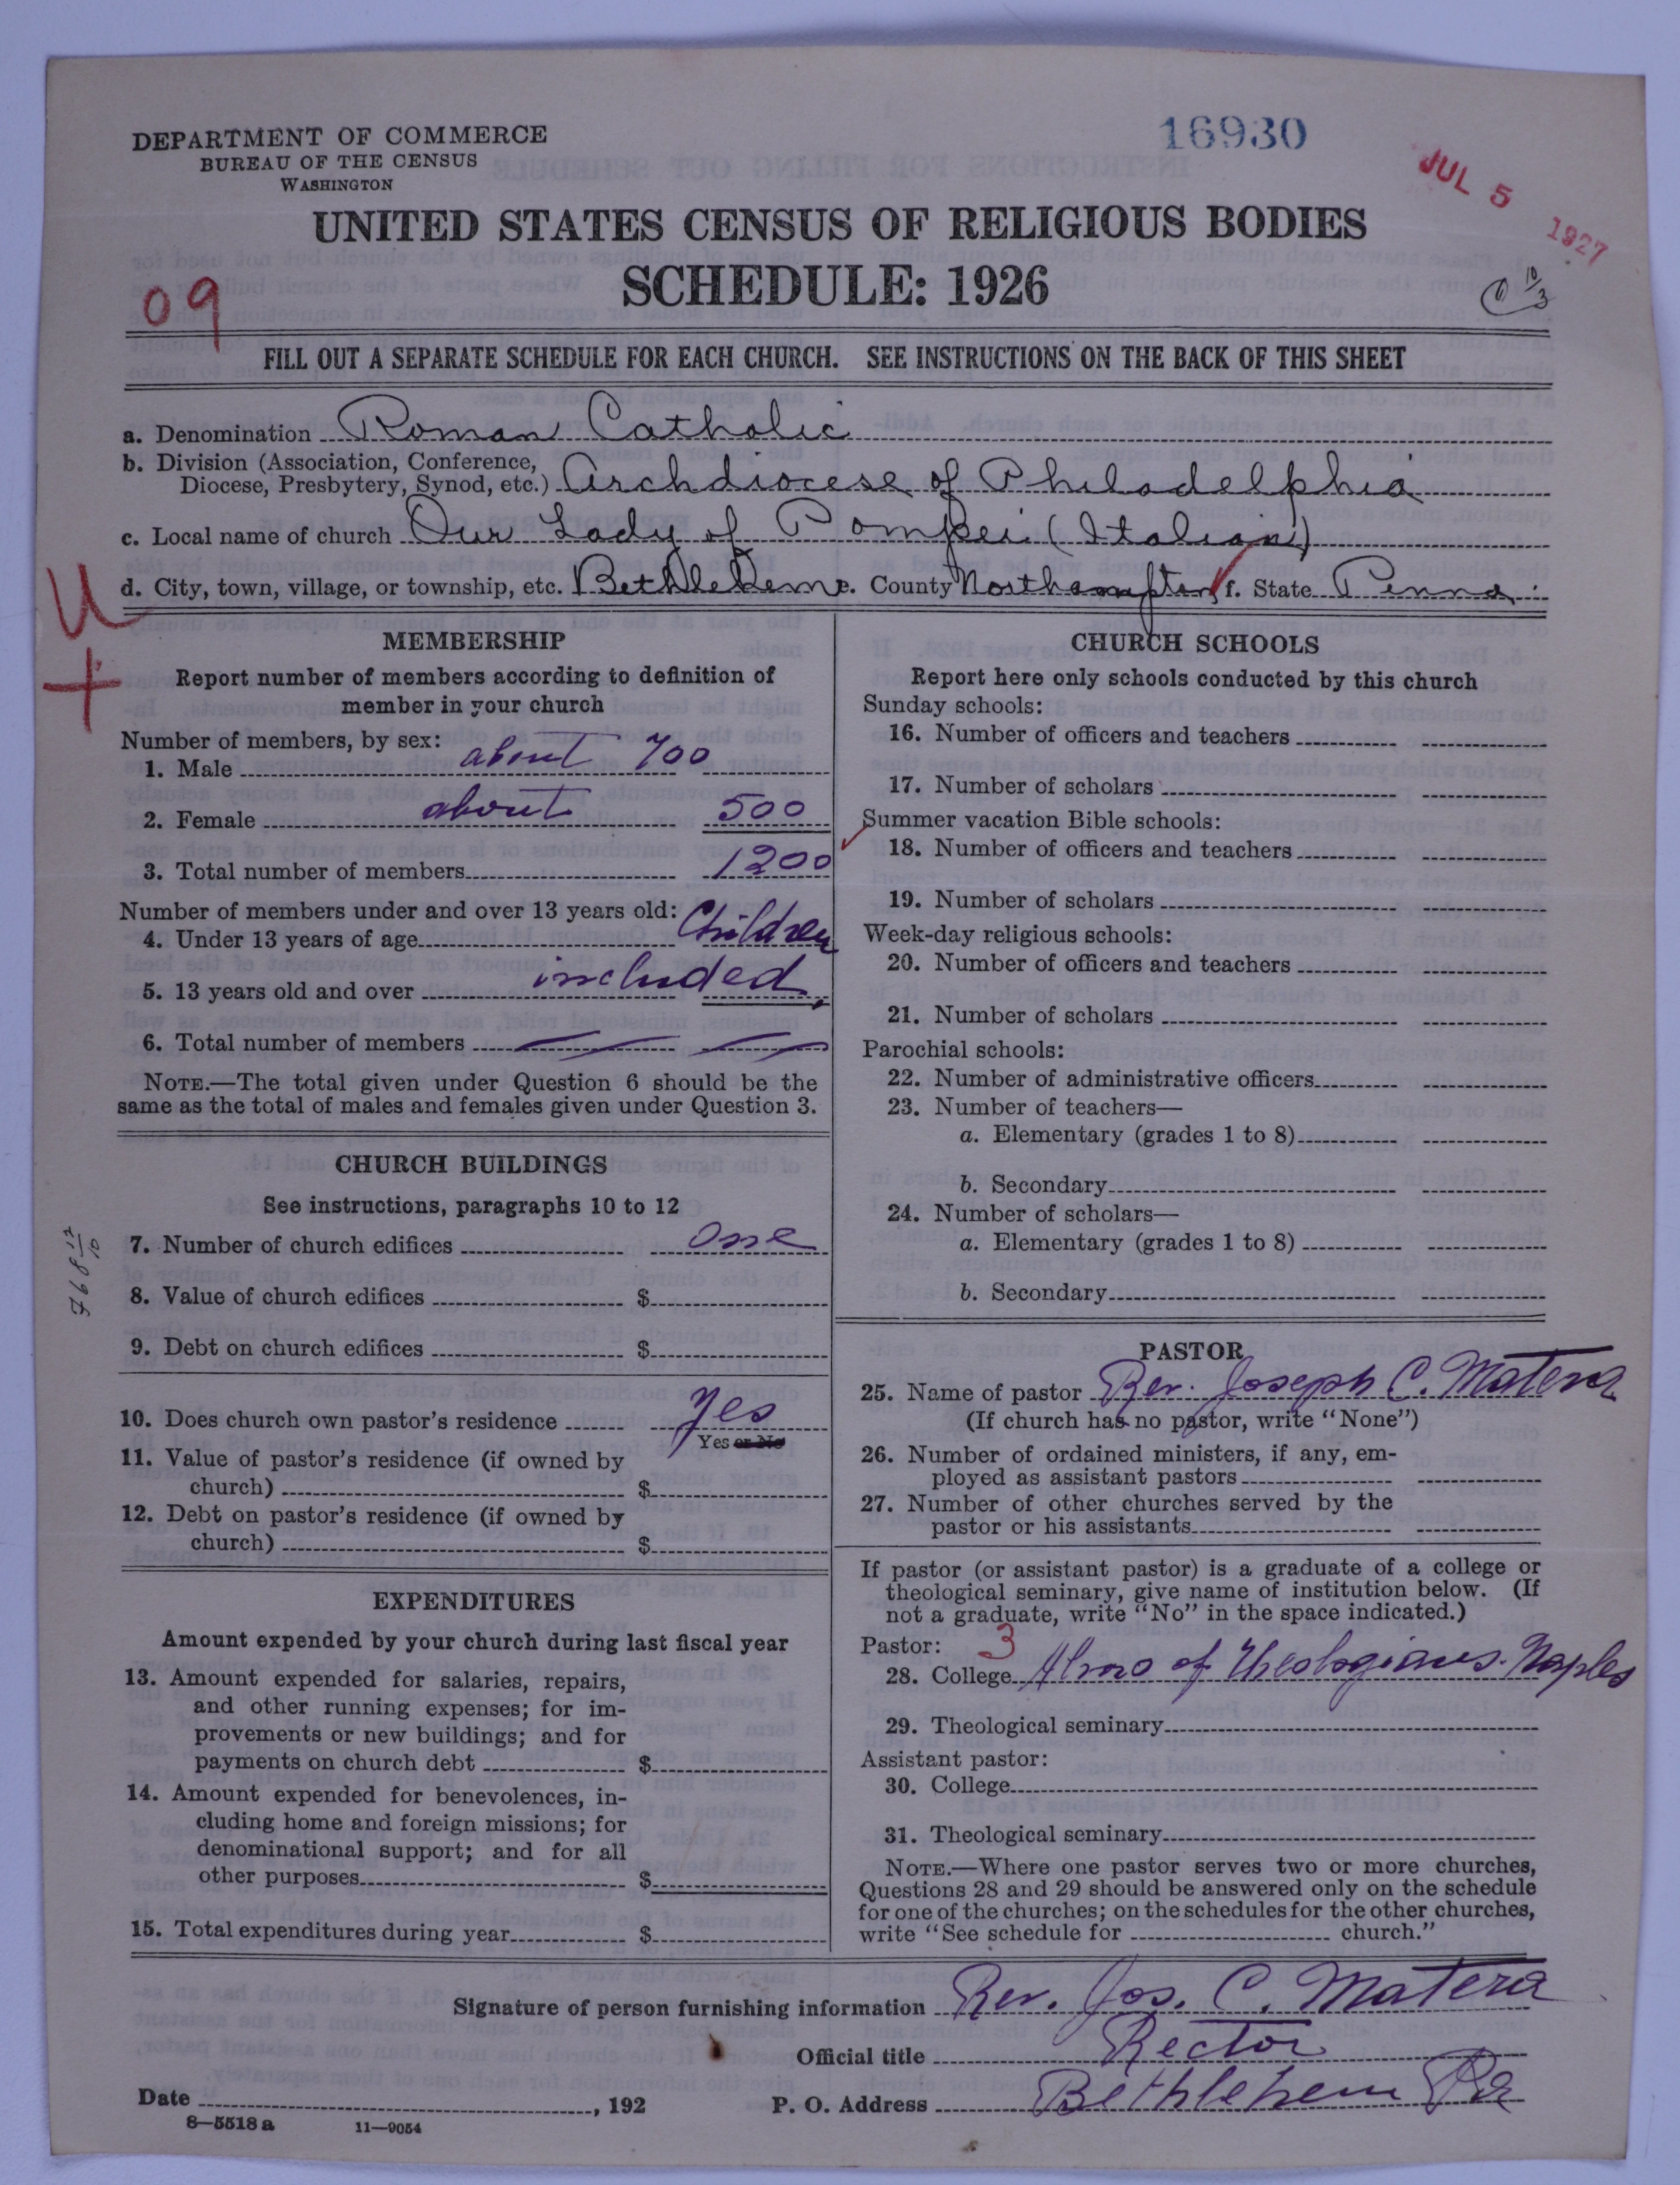 DEPARTMENT OF COMMERCE
BUREAU OF THE CENSUS
WASHINGTON
16930
JUL 5 1927
UNITED STATES CENSUS OF RELIGIOUS BODIES
SCHEDULE: 1926
09
FILL OUT A SEPARATE SCHEDULE FOR EACH CHURCH. SEE INSTRUCTIONS ON THE BACK OF THIS SHEET
a. Denomination Roman Catholic
b. Division (Association, Conference,
Diocese, Presbytery, Synod, etc.) Archdiocese of Philadelphia
c. Local name of church Our Lady of Pompei (Italian)
d. City, town, village, or township, etc. Bethlehem e. County Northampton f. State Penna.
U
+
MEMBERSHIP
Report number of members according to definition of
member in your church
Number of members, by sex:
1. Male about 700
2. Female about 500
3. Total number of members 1200
Number of members under and over 13 years old:
4. Under 13 years of age Children
5. 13 years old and over included
6. Total number of members
NOTE.—The total given under Question 6 should be the
same as the total of males and females given under Question 3.
CHURCH BUILDINGS
See instructions, paragraphs 10 to 12
7. Number of church edifices One
8. Value of church edifices $
9. Debt on church edifices $
10. Does church own pastor's residence Yes
Yes or No
11. Value of pastor's residence (if owned by
church) $
12. Debt on pastor's residence (if owned by
church) $
EXPENDITURES
Amount expended by your church during last fiscal year
13. Amount expended for salaries, repairs,
and other running expenses; for im-
provements or new buildings; and for
payments on church debt $
14. Amount expended for benevolences, in-
cluding home and foreign missions; for
denominational support; and for all
other purposes $
15. Total expenditures during year $
CHURCH SCHOOLS
Report here only schools conducted by this church
Sunday schools:
16. Number of officers and teachers
17. Number of scholars
Summer vacation Bible schools:
18. Number of officers and teachers
19. Number of scholars
Week-day religious schools:
20. Number of officers and teachers
21. Number of scholars
Parochial schools:
22. Number of administrative officers
23. Number of teachers—
a. Elementary (grades 1 to 8)
b. Secondary
24. Number of scholars—
a. Elementary (grades 1 to 8)
b. Secondary
PASTOR
25. Name of pastor Rev. Joseph C. Matera
(If church has no pastor, write "None")
26. Number of ordained ministers, if any, em-
ployed as assistant pastors
27. Number of other churches served by the
pastor or his assistants
If pastor (or assistant pastor) is a graduate of a college or
theological seminary, give name of institution below. (If
not a graduate, write "No" in the space indicated.)
Pastor: 3
28. College of Theologians. Naples
29. Theological seminary
Assistant pastor:
30. College
31. Theological seminary
NOTE.—Where one pastor serves two or more churches,
Questions 28 and 29 should be answered only on the schedule
for one of the churches; on the schedules for the other churches,
write "See schedule for church."
Signature of person furnishing information Rev. Jos. C. Matera
Official title Rector
Date , 192 P. O. Address Bethlehem Pa
8—5518 a 11—9054